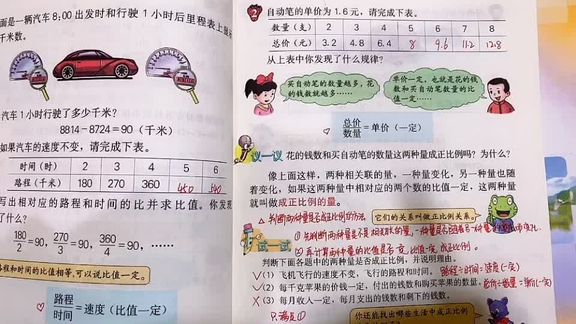 面是一辆汽车8:00出发时和行驶1小时后里程表上显
千米数。
汽车1小时行驶了多少千米？
8814－8724＝90（千米）
如果汽车的速度不变，请完成下表。
时间（时） 2 3 4 5 6
路程（千米） 180 270 360 450 540
写出相对应的路程和时间的比并求比值。你发现
了什么？
180/2＝90，270/3＝90，360/4＝90，……
路程和时间的比值相等，可以说比值一定。
路程/时间＝速度（比值一定）
2 自动笔的单价为1.6元，请完成下表。
数量（支） 2 3 4 5 6 7 8
总价（元） 3.2 4.8 6.4 8 9.6 11.2 12.8
从上表中你发现了什么规律？
买自动笔的数量越多，花
的钱数就越多……
单价一定，也就是花的钱
数和买自动笔数量的比
值一定……
总价/数量＝单价（一定）
议一议 花的钱数和买自动笔的数量这两种量成正比例吗？为什么？
像上面这样，两种相关联的量，一种量变化，另一种量也随
着变化，如果这两种量中相对应的两个数的比值一定，这两种量
就叫做成正比例的量。
它们的关系叫做正比例关系。
试一试
判断下面各题中的两种量是否成正比例，并说明理由。
√（1）飞机飞行的速度不变，飞行的路程和时间。 路程÷时间=速度(一定)
√（2）每千克苹果的价钱一定，付出的钱数和购买苹果的数量。
×（3）每月收入一定，每月支出的钱数和剩下的钱数。
你还能找出哪些生活中成正比例